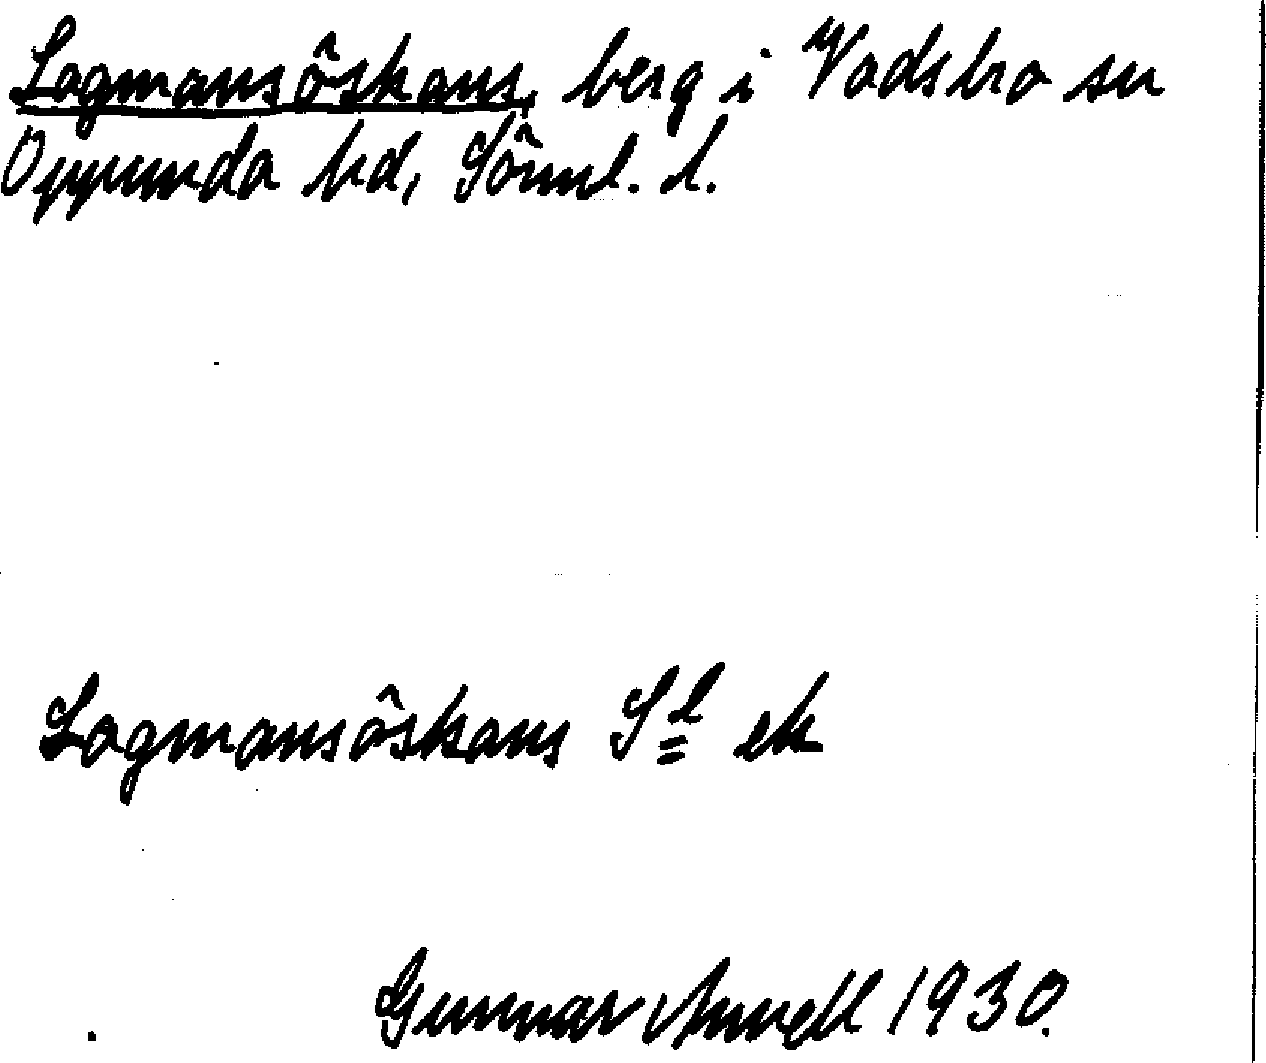 Lagmansöskans, berg i Vadsbro sn
Oppunda hd, Sörml. l.
Lagmansöskans Sl ek
Gunnar 1930.